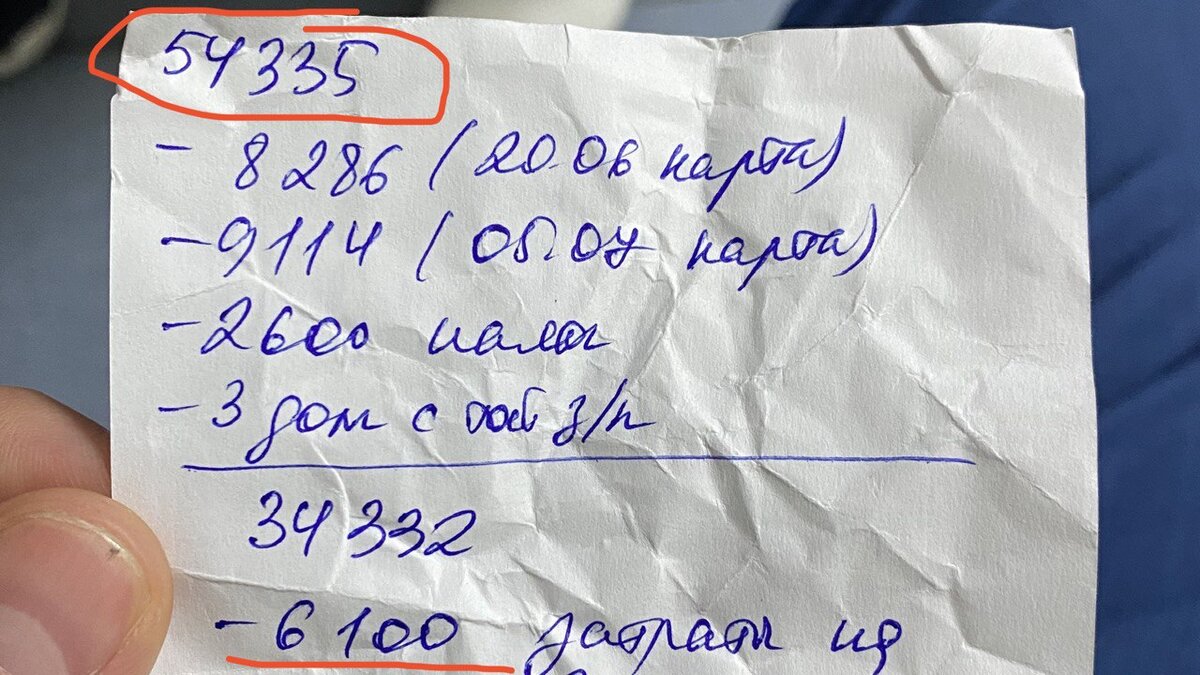 54335
- 8286 (20.06 карта)
-9114 (05.07 карта)
-2600 налог
-3 долг с той з/п
34332
-6100 затраты из